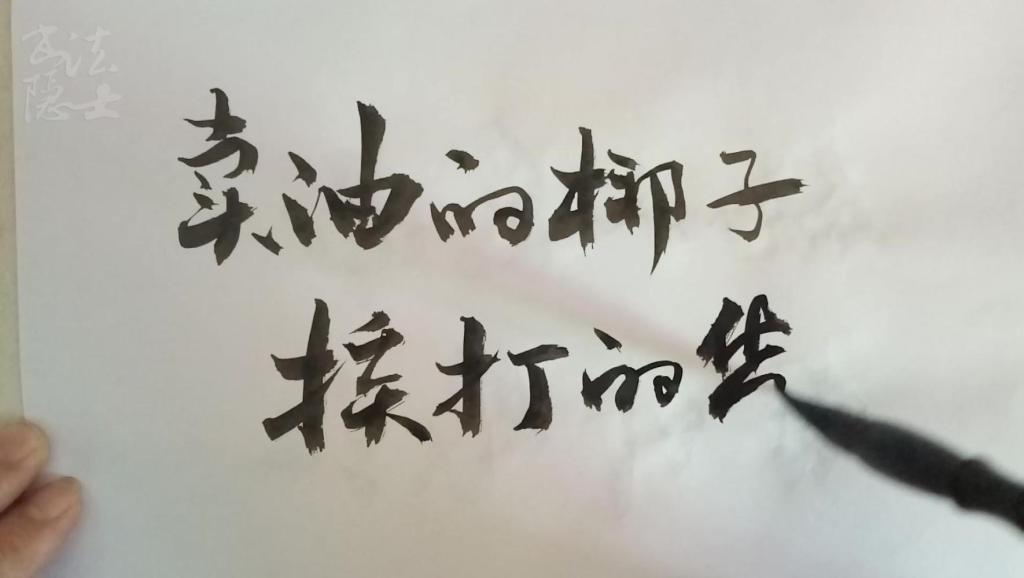 书法
隐士
卖油的梆子
挨打的